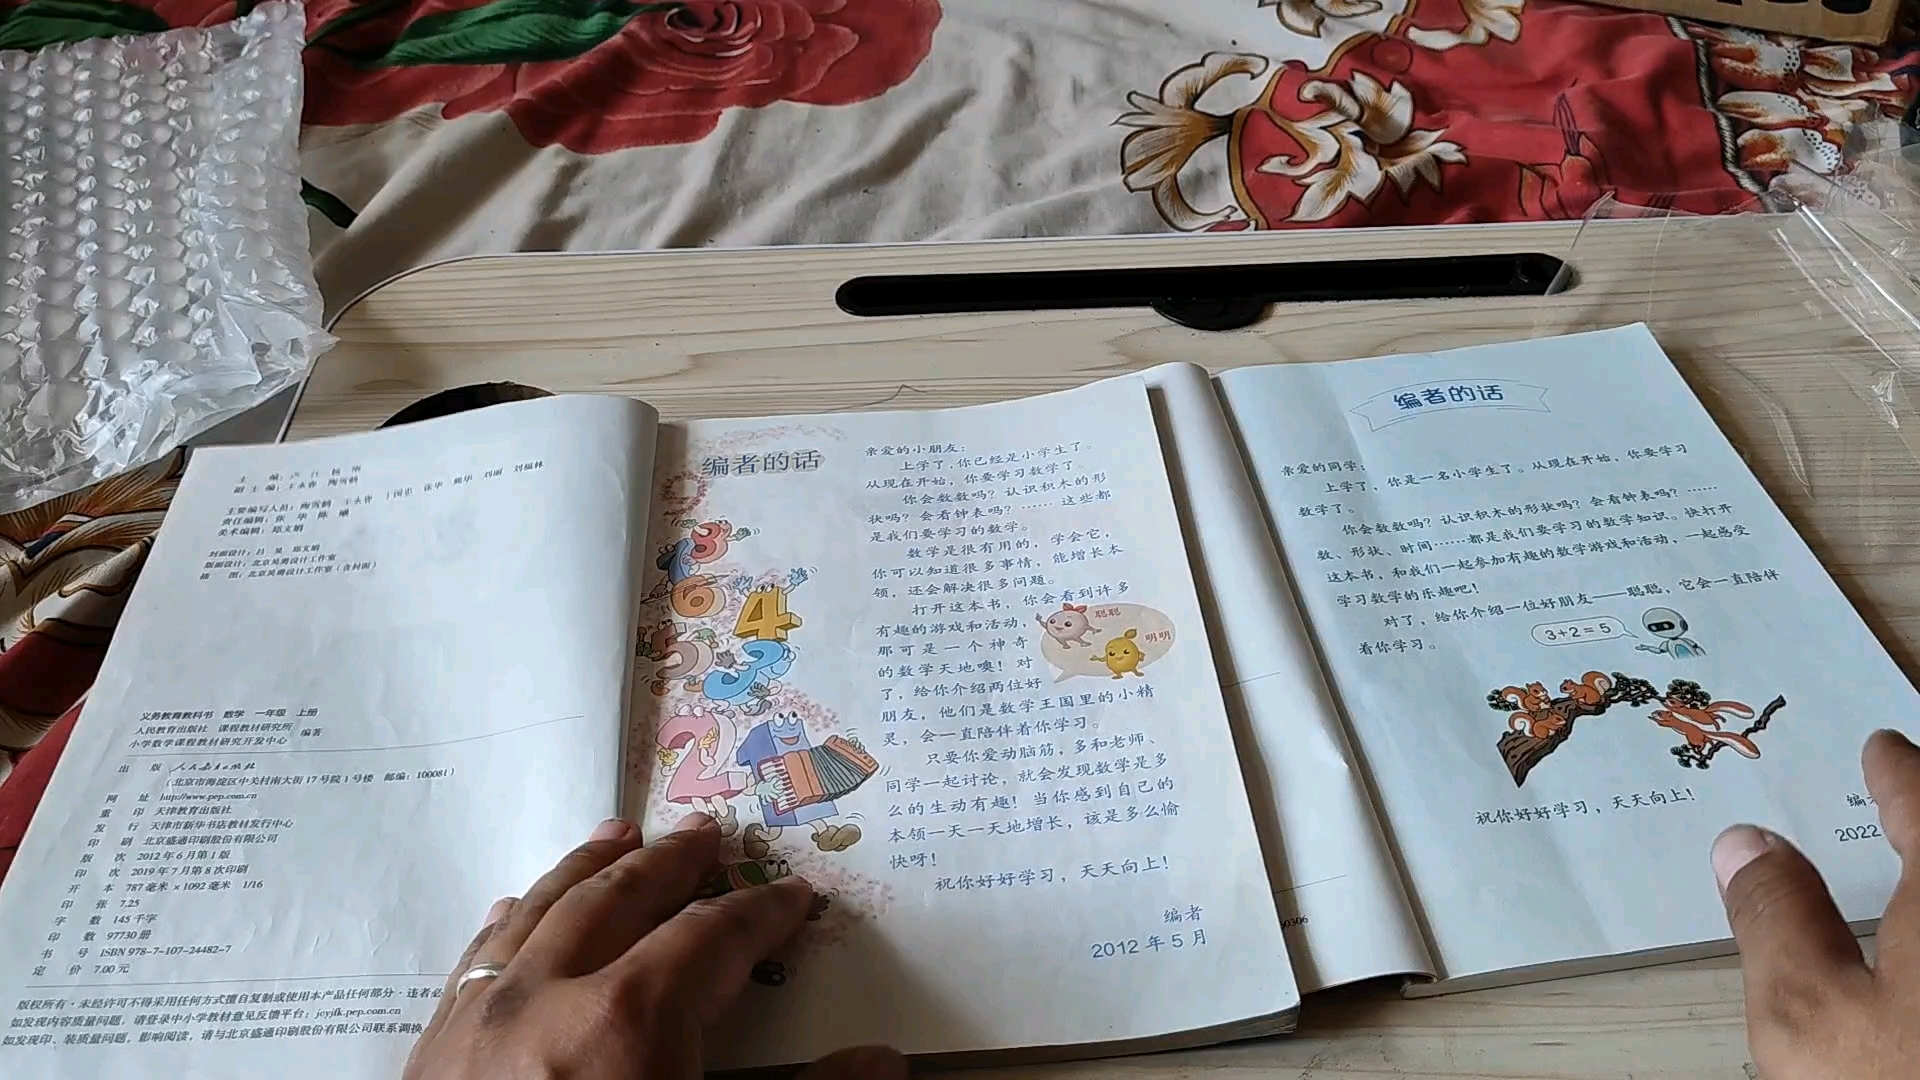 主 编：卢 江 杨 刚
副 主 编：王永春 陶雪鹤
主要编写人员：陶雪鹤 王永春 丁国忠 张华 熊华 刘丽 刘福林
责任编辑：张 华 陈 曦
美术编辑：郑文娟
封面设计：吕 旻 郑文娟
版面设计：北京吴勇设计工作室
插 图：北京吴勇设计工作室（含封面）
义务教育教科书 数学 一年级 上册
人民教育出版社 课程教材研究所
小学数学课程教材研究开发中心
编著
出 版 人民教育出版社
（北京市海淀区中关村南大街17号院1号楼 邮编：100081）
网 址 http://www.pep.com.cn
重 印 天津教育出版社
发 行 天津市新华书店教材发行中心
印 刷 北京盛通印刷股份有限公司
版 次 2012年6月第1版
印 次 2019年7月第8次印刷
开 本 787毫米×1092毫米 1/16
印 张 7.25
字 数 145千字
印 数 97730册
书 号 ISBN 978-7-107-24482-7
定 价 7.00元
版权所有·未经许可不得采用任何方式擅自复制或使用本产品任何部分·违者必
如发现内容质量问题，请登录中小学教材意见反馈平台：jcyjfk.pep.com.cn
如发现印、装质量问题，影响阅读，请与北京盛通印刷股份有限公司联系调换
编者的话
亲爱的小朋友：
上学了，你已经是小学生了。
从现在开始，你要学习数学了。
你会数数吗？认识积木的形
状吗？会看钟表吗？……这些都
是我们要学习的数学。
数学是很有用的，学会它，
你可以知道很多事情，能增长本
领，还会解决很多问题。
打开这本书，你会看到许多
有趣的游戏和活动，
那可是一个神奇
的数学天地噢！对
了，给你介绍两位好
朋友，他们是数学王国里的小精
灵，会一直陪伴着你学习。
聪聪
明明
只要你爱动脑筋，多和老师、
同学一起讨论，就会发现数学是多
么的生动有趣！当你感到自己的
本领一天一天地增长，该是多么愉
快呀！
祝你好好学习，天天向上！
编者
2012年5月
编者的话
亲爱的同学：
上学了，你是一名小学生了。从现在开始，你要学习
数学了。
你会数数吗？认识积木的形状吗？会看钟表吗？……
数、形状、时间……都是我们要学习的数学知识。快打开
这本书，和我们一起参加有趣的数学游戏和活动，一起感受
学习数学的乐趣吧！
对了，给你介绍一位好朋友——聪聪，它会一直陪伴
着你学习。
3+2=5
祝你好好学习，天天向上！
编
2022